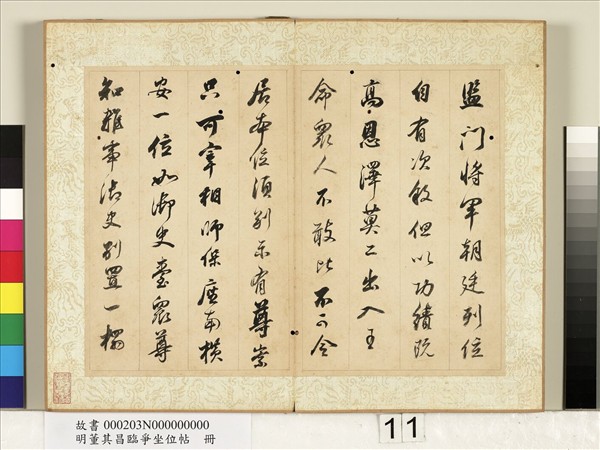 監門將軍朝廷列位
自有次叙但以功績既
高恩澤莫二出入王
命衆人不敢比不可令
居本位須別示有尊崇
只可宰相師保座南橫
安一位如御史臺衆尊
知雜事御史別置一榻
故書 000203N000000000
明董其昌臨爭坐位帖 冊
11